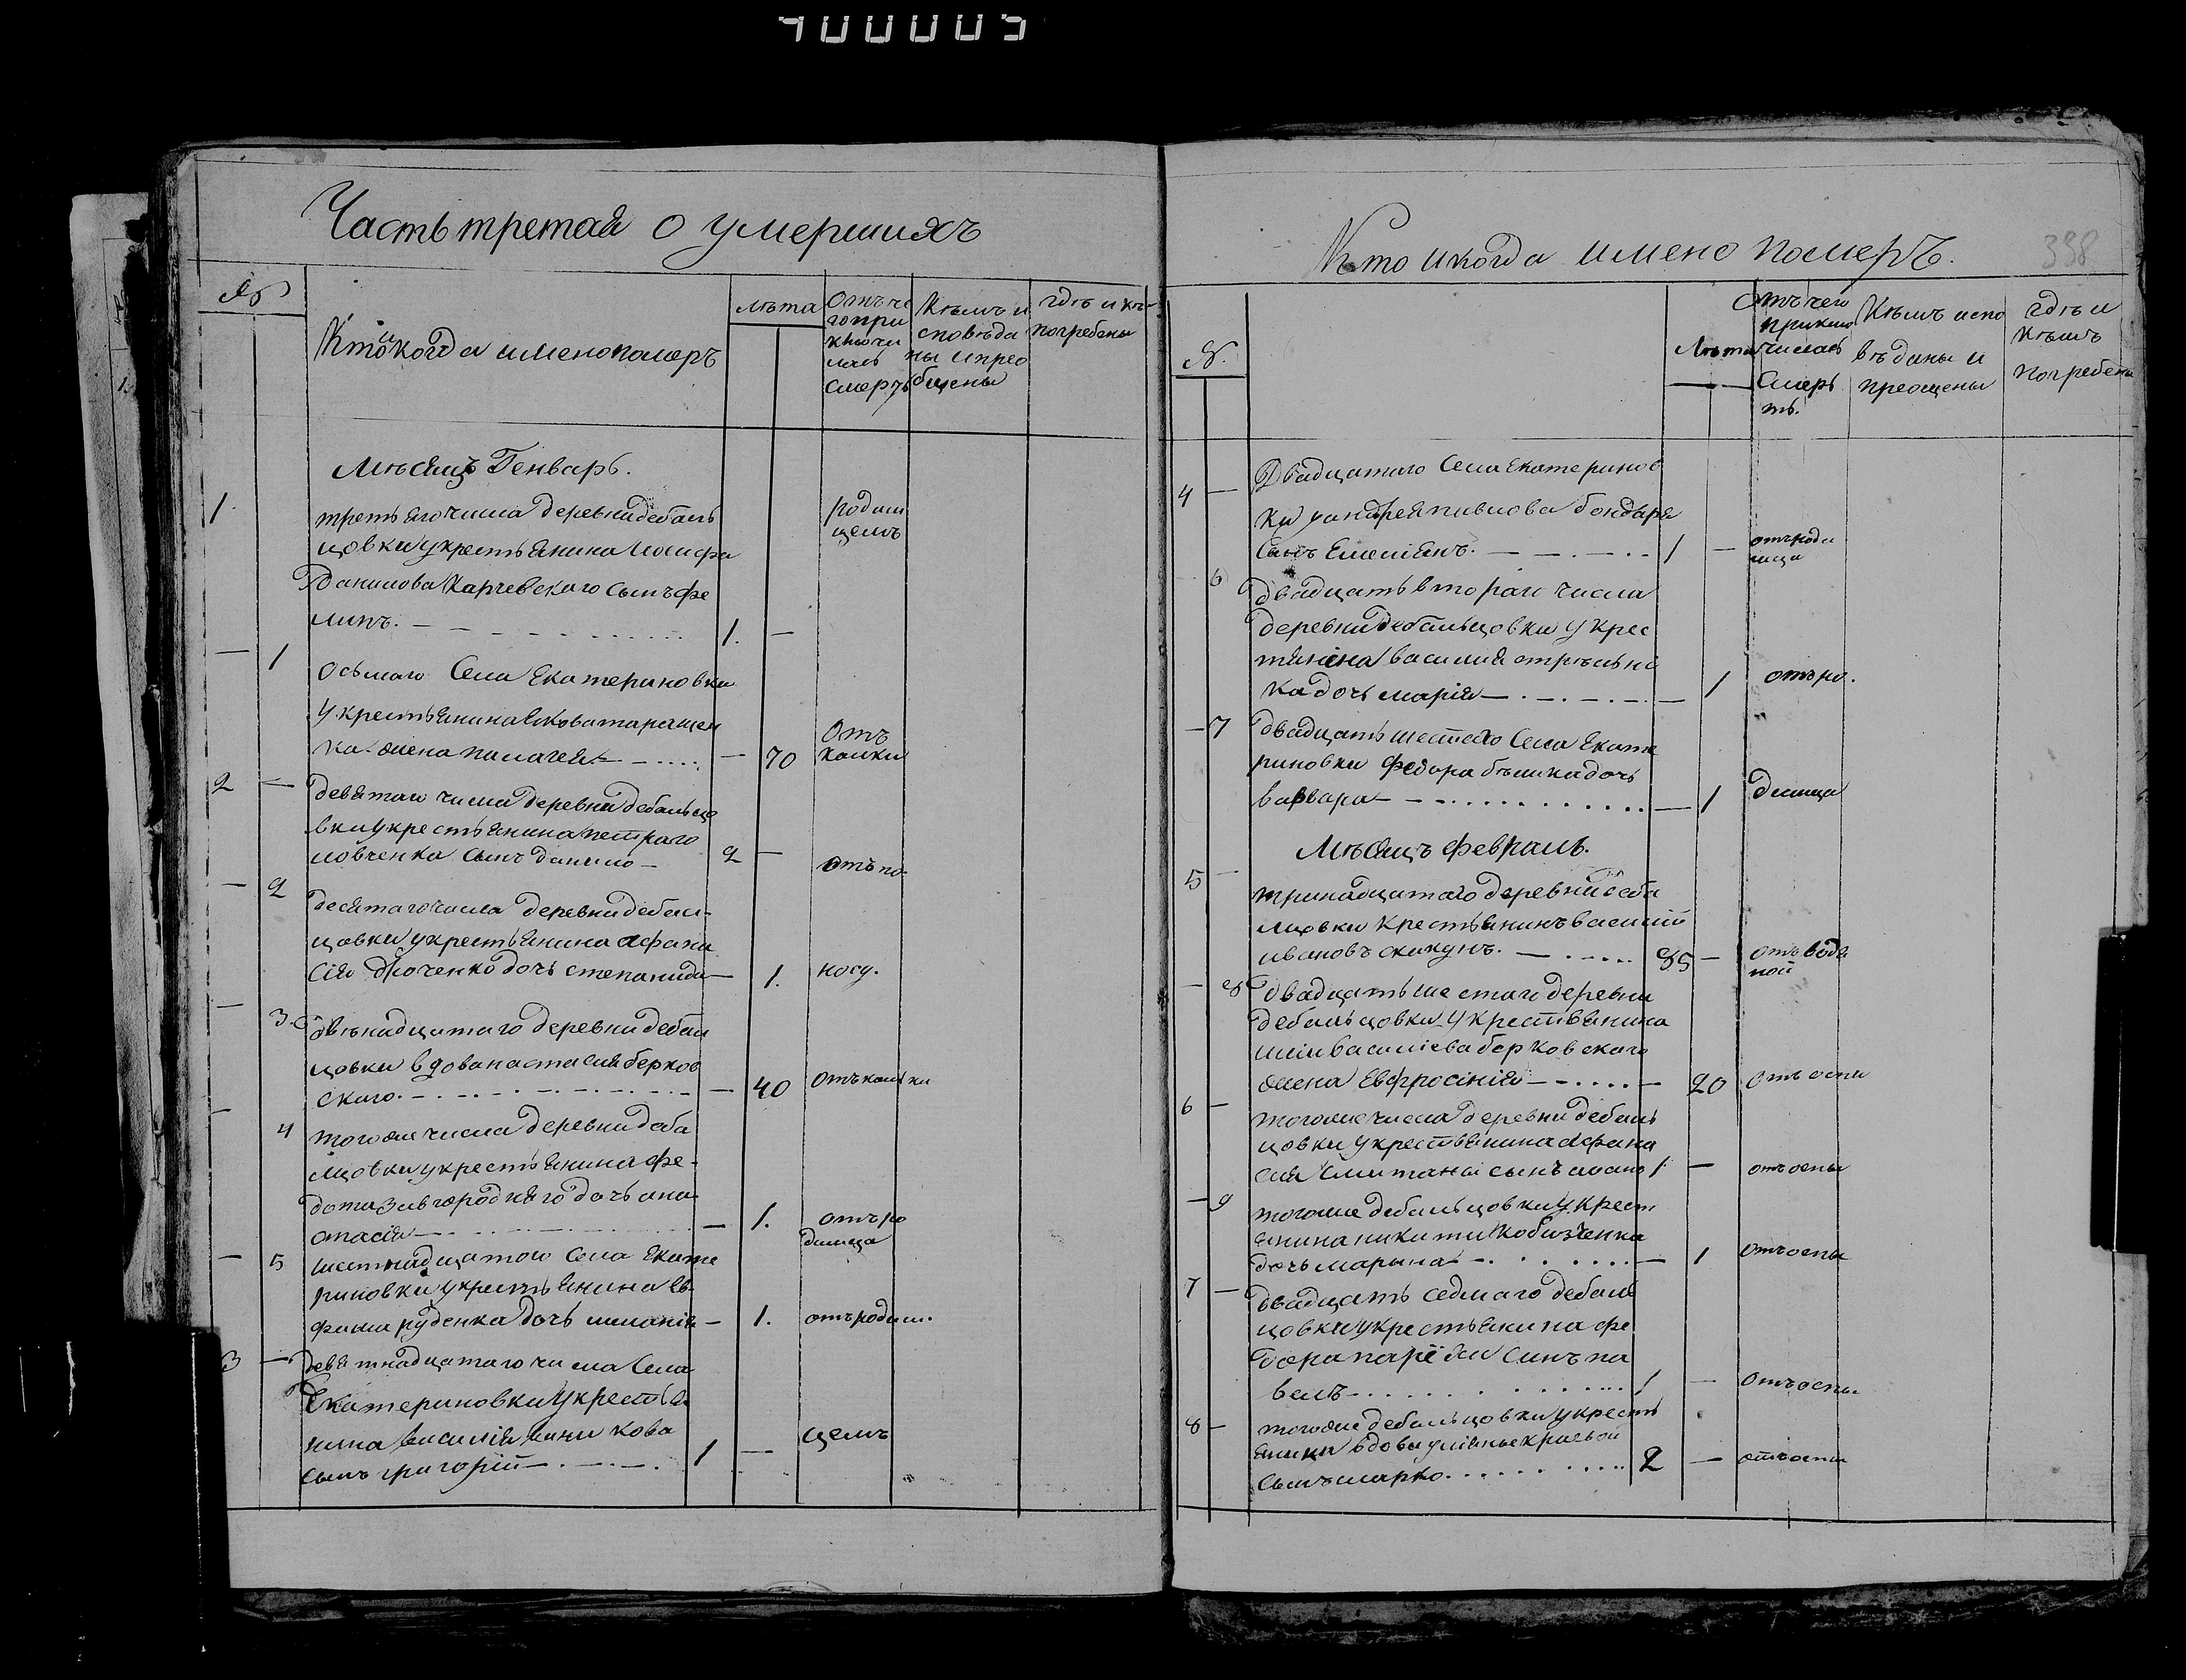 400005
Часть третая о умершихъ
№
Кто и когда имено померъ
лѣта
Отъ че
го при
ключи
лась
смерть
Кѣмъ и
сповѣда
ны и прео
бщены
гдѣ и кѣ-
погребены
Мѣсяцъ Генварь.
1.
третьяго числа деревни дебаль
цовки у крестьянина Иосифа
Данилова Карчевского сынъ фи
липъ. 1. —
родим
цемъ
— 1
осьмаго Села Екатериновки
у крестьянина Якова таращен
ка жена палагея — 70
Отъ
колики
2 —
девятаго числа деревни дебальцо
вки у крестьянина петра го
ловченка сынъ данило — 2 —
отъ по-
— 2
десятаго числа деревни дебал-
цовки у крестьянина афана
сія дочь степанида — 1.
носу.
— 3.
двѣнадцатаго деревни дебал
цовки вдова настасия берков
ского. — 40
отъ колики
— 4
того же числа деревни деба
лцовки у крестьянина фе-
дота завгородняго дочь ана
стасія — 1.
отъ ро
димца
— 5
шестнадцатого Села Екате
риновки у крестьянина ев-
фима руденка дочь меланія — 1.
отъ родим.
3 —
девятнадцатаго числа Села
Екатериновки у крестья
нина василія кова
сынъ григорій — 1 —
цемъ
Кто и когда имено померъ.
338
№.
Лѣта
Отъ чего
приклю
чилась
Смерь
ть.
Кѣмъ испо
вѣданы и
преощены
гдѣ и
кѣмъ
погребены
4 —
Двадцатаго Села Екатеринов
ки у андрея павлова бондаря
сынъ Емелиянъ. 1 —
отъ роди
мца
6
двадцать втораго числа
деревни дебальцовки у крес
тянина василия стрѣльни
ка дочь марія — 1
отъ ро.
— 7
двадцать шестаго Села Екате
риновки федора бѣлика дочь
варвара — 1
димца
Мѣсяцъ февраль.
5 —
тринадцатаго деревни деба
лцовки крестьянинъ василій
ивановъ скакунъ. 35 —
отъ водя
ной
— 8
двадцать шестаго деревни
дебальцовки у крестьянина
василіева берковского
жена Евфросинія — 20
отъ оспы
6 —
того же числа деревни дебаль
цовки у крестьянина афана
сия сынъ 1 —
отъ оспы
— 9
того же дебальцовки у крест
янина никити кобизченка
дочь марына — 1
отъ оспы
7 —
двадцать седмаго дебаль
цовки у крестьянина фе
дора сынъ па
велъ 1 —
отъ оспы
8 —
того же дебальцовки у кресть
янки вдовы улияны краевой
сынъ марко. 2 —
отъ оспы